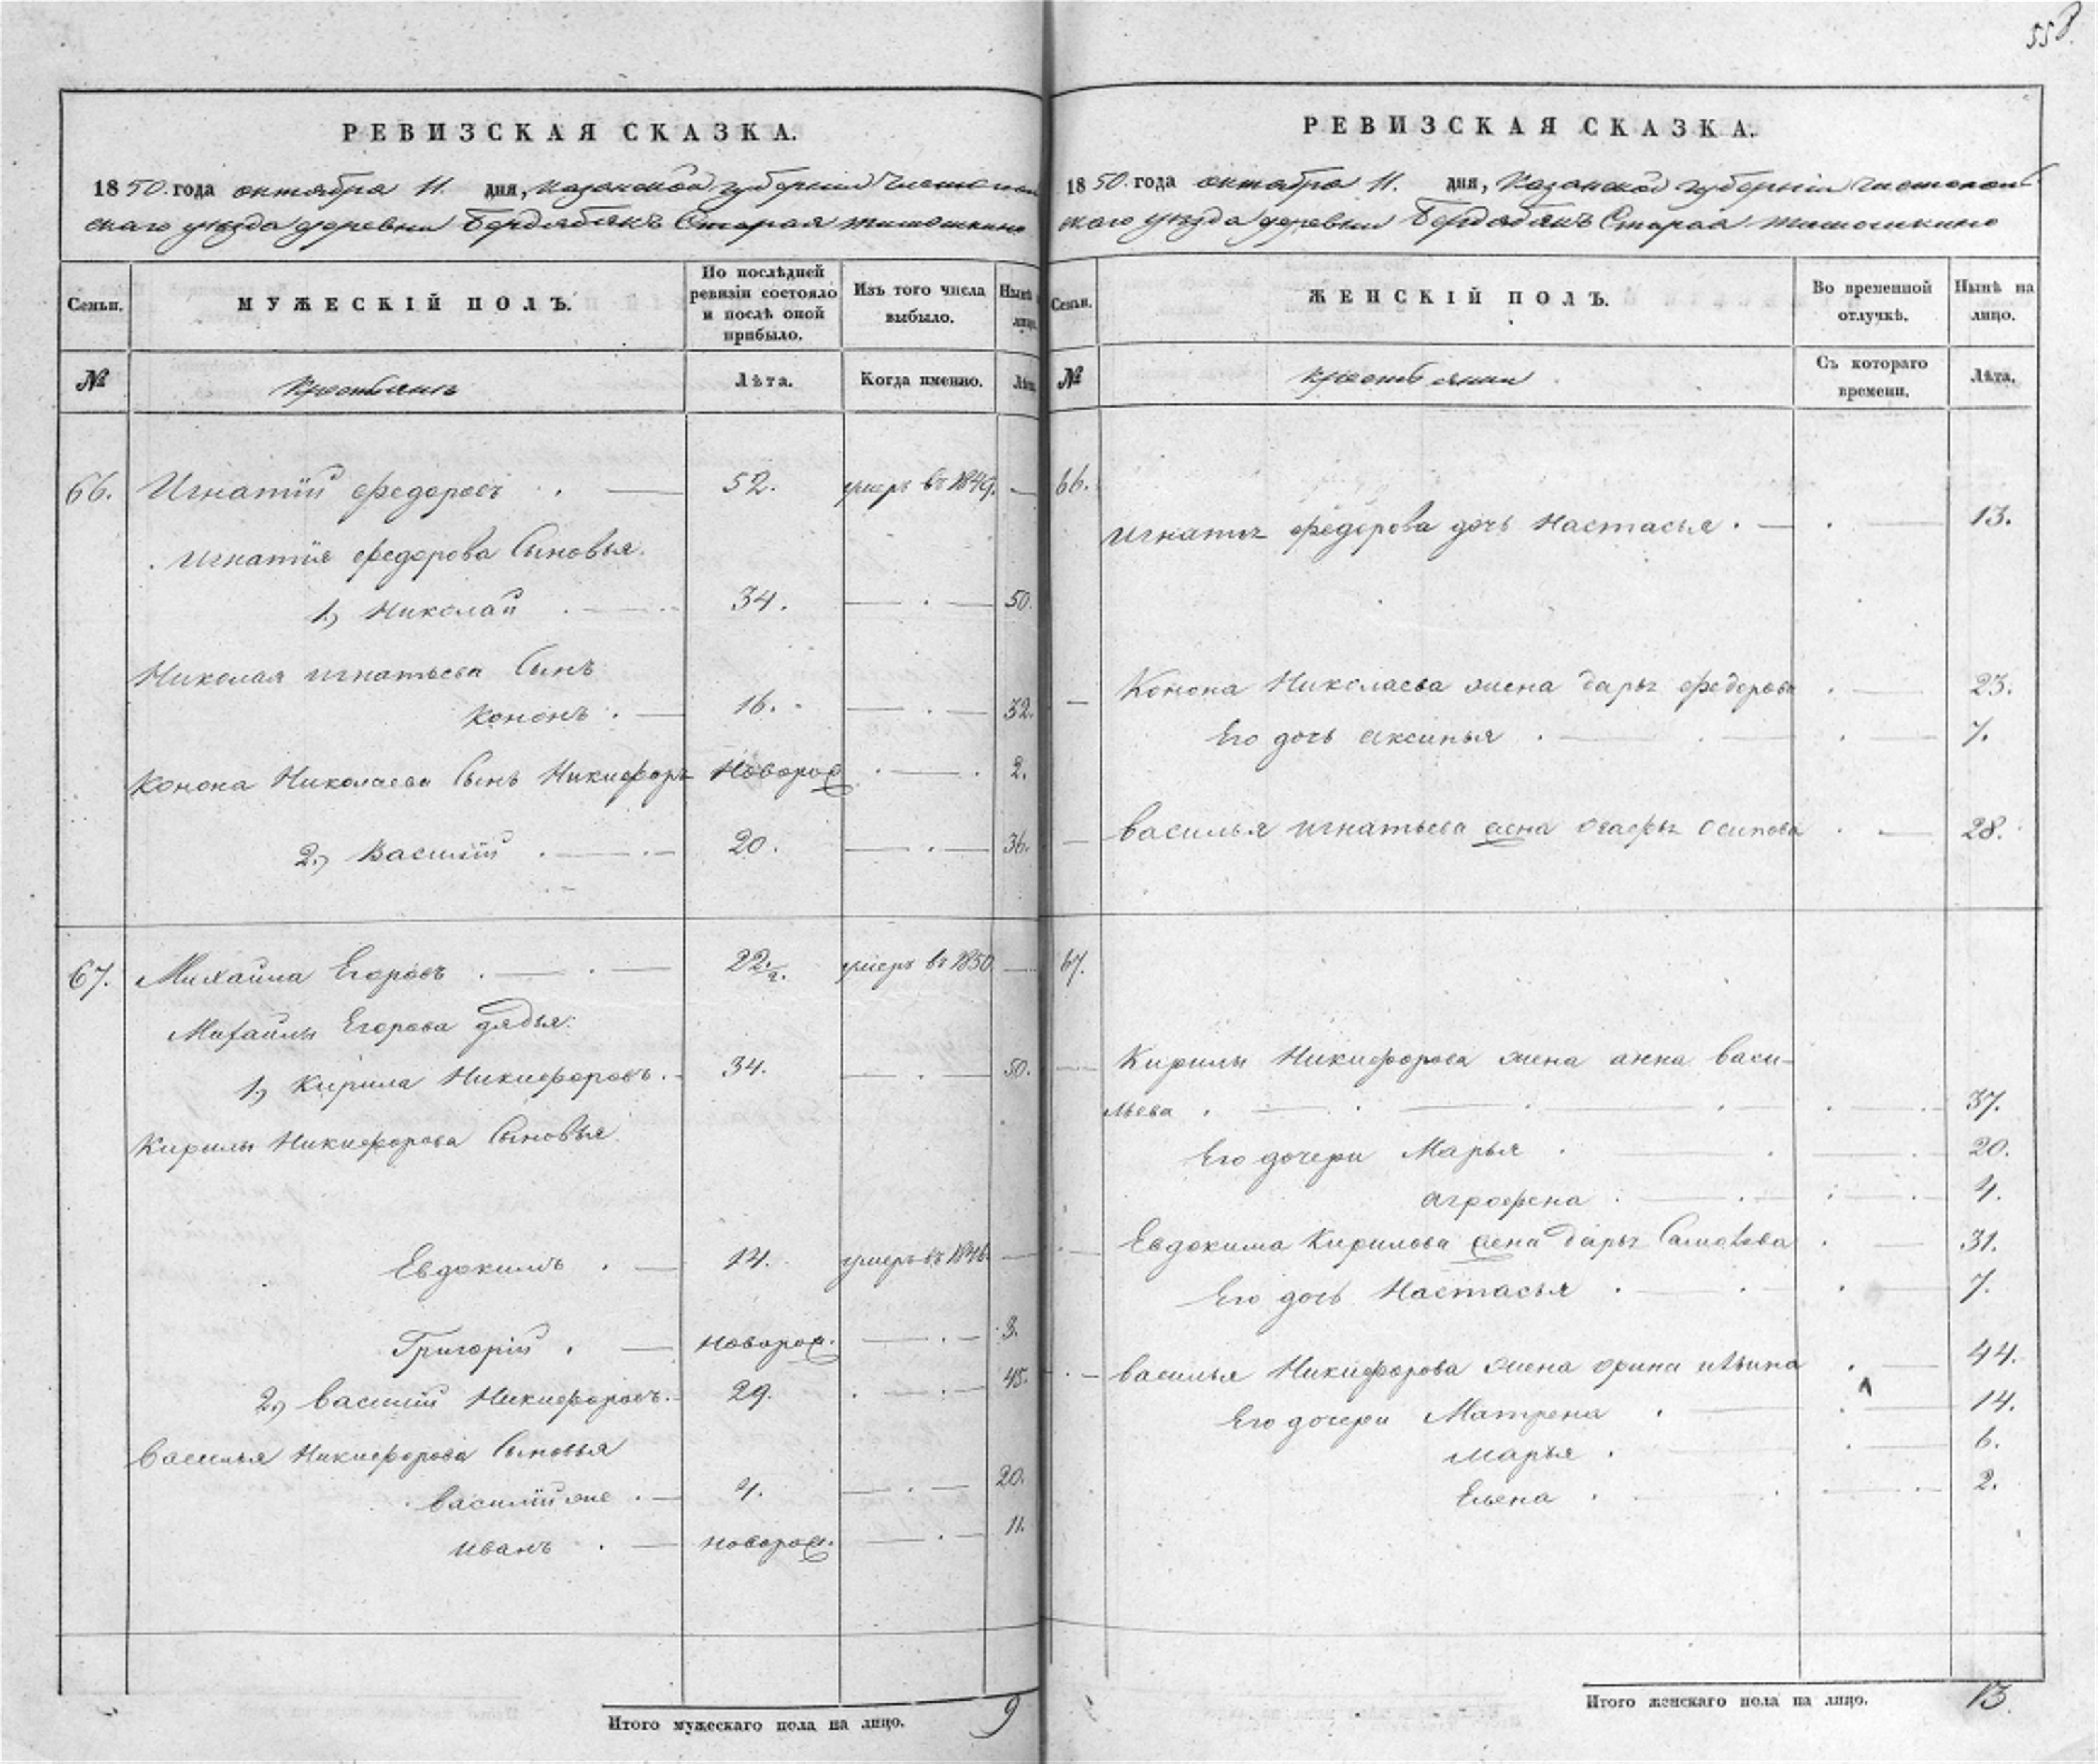 558.
РЕВИЗСКАЯ СКАЗКА.
1850 года октября 11. дня, Казанской губерніи Чистополь
скаго уѣзда деревни Бердябякъ Старая тимошкино
Семьи.
МУЖЕСКІЙ ПОЛЪ.
По послѣдней
ревизіи состояло
и послѣ оной
прибыло.
Изъ того числа
выбыло.
Нынѣ
лицо.
№
Крестьянъ
Лѣта.
Когда именно.
Лѣта
66. Игнатій федоровъ . — 52. умеръ въ 1849. —
Игнатія федорова Сыновья.
1., Николай . — 34. — . — 50.
Николая игнатьева Сынъ
Кононъ . — 16. — . — 32.
Конона Николаева Сынъ Никифоръ Новорож . — . 2.
2., Василій . — . — 20. — . — 36.
67. Михайла Егоровъ . — . — 22.½. умеръ въ 1850 —
Михайлы Егорова дядья:
1., Кирила Никифоровъ . — 34. — . — 50.
Кирилы Никифорова Сыновья.
Евдокимъ . — 14. умеръ въ 1846. —
Григорій . — новорож. — . — 3.
2., Василій Никифоровъ. — 29. . — . — 45.
Василья Никифорова Сыновья
василій же . — 4. — . — 20.
иванъ . — новорож. — . — 11.
Итого мужескаго пола на лицо. 9
РЕВИЗСКАЯ СКАЗКА.
1850 года октября 11. дня, Казанской губерніи Чистополь
скаго уѣзда деревни Бердябякъ Старая тимошкино
Семьи.
ЖЕНСКІЙ ПОЛЪ.
Во временной
отлучкѣ.
Нынѣ на
лицо.
№
крестьянки
Съ котораго
времени.
Лѣта.
66.
игнатия федорова дочь Настасья . — . — 13.
— Конона Николаева жена дарья федорова . — 23.
Его дочь аксинья . — . — 7.
— василья игнатьева жена Осипова . — 28.
67.
— Кирилы Никифорова жена анна васи-
льева . — . — . — . — . — 37.
Его дочери Марья . — . — . 20.
агрофена . — . — . — . 4.
— Евдокима Кирилова жена дарья . — 31.
Его дочь Настасья . — . — . — 7.
— василья Никифорова жена орина ильина . — 44.
Его дочери Матрена . — . — 14.
марья . — . — 6.
Елена . — . — . 2.
Итого женскаго пола на лицо. 13.